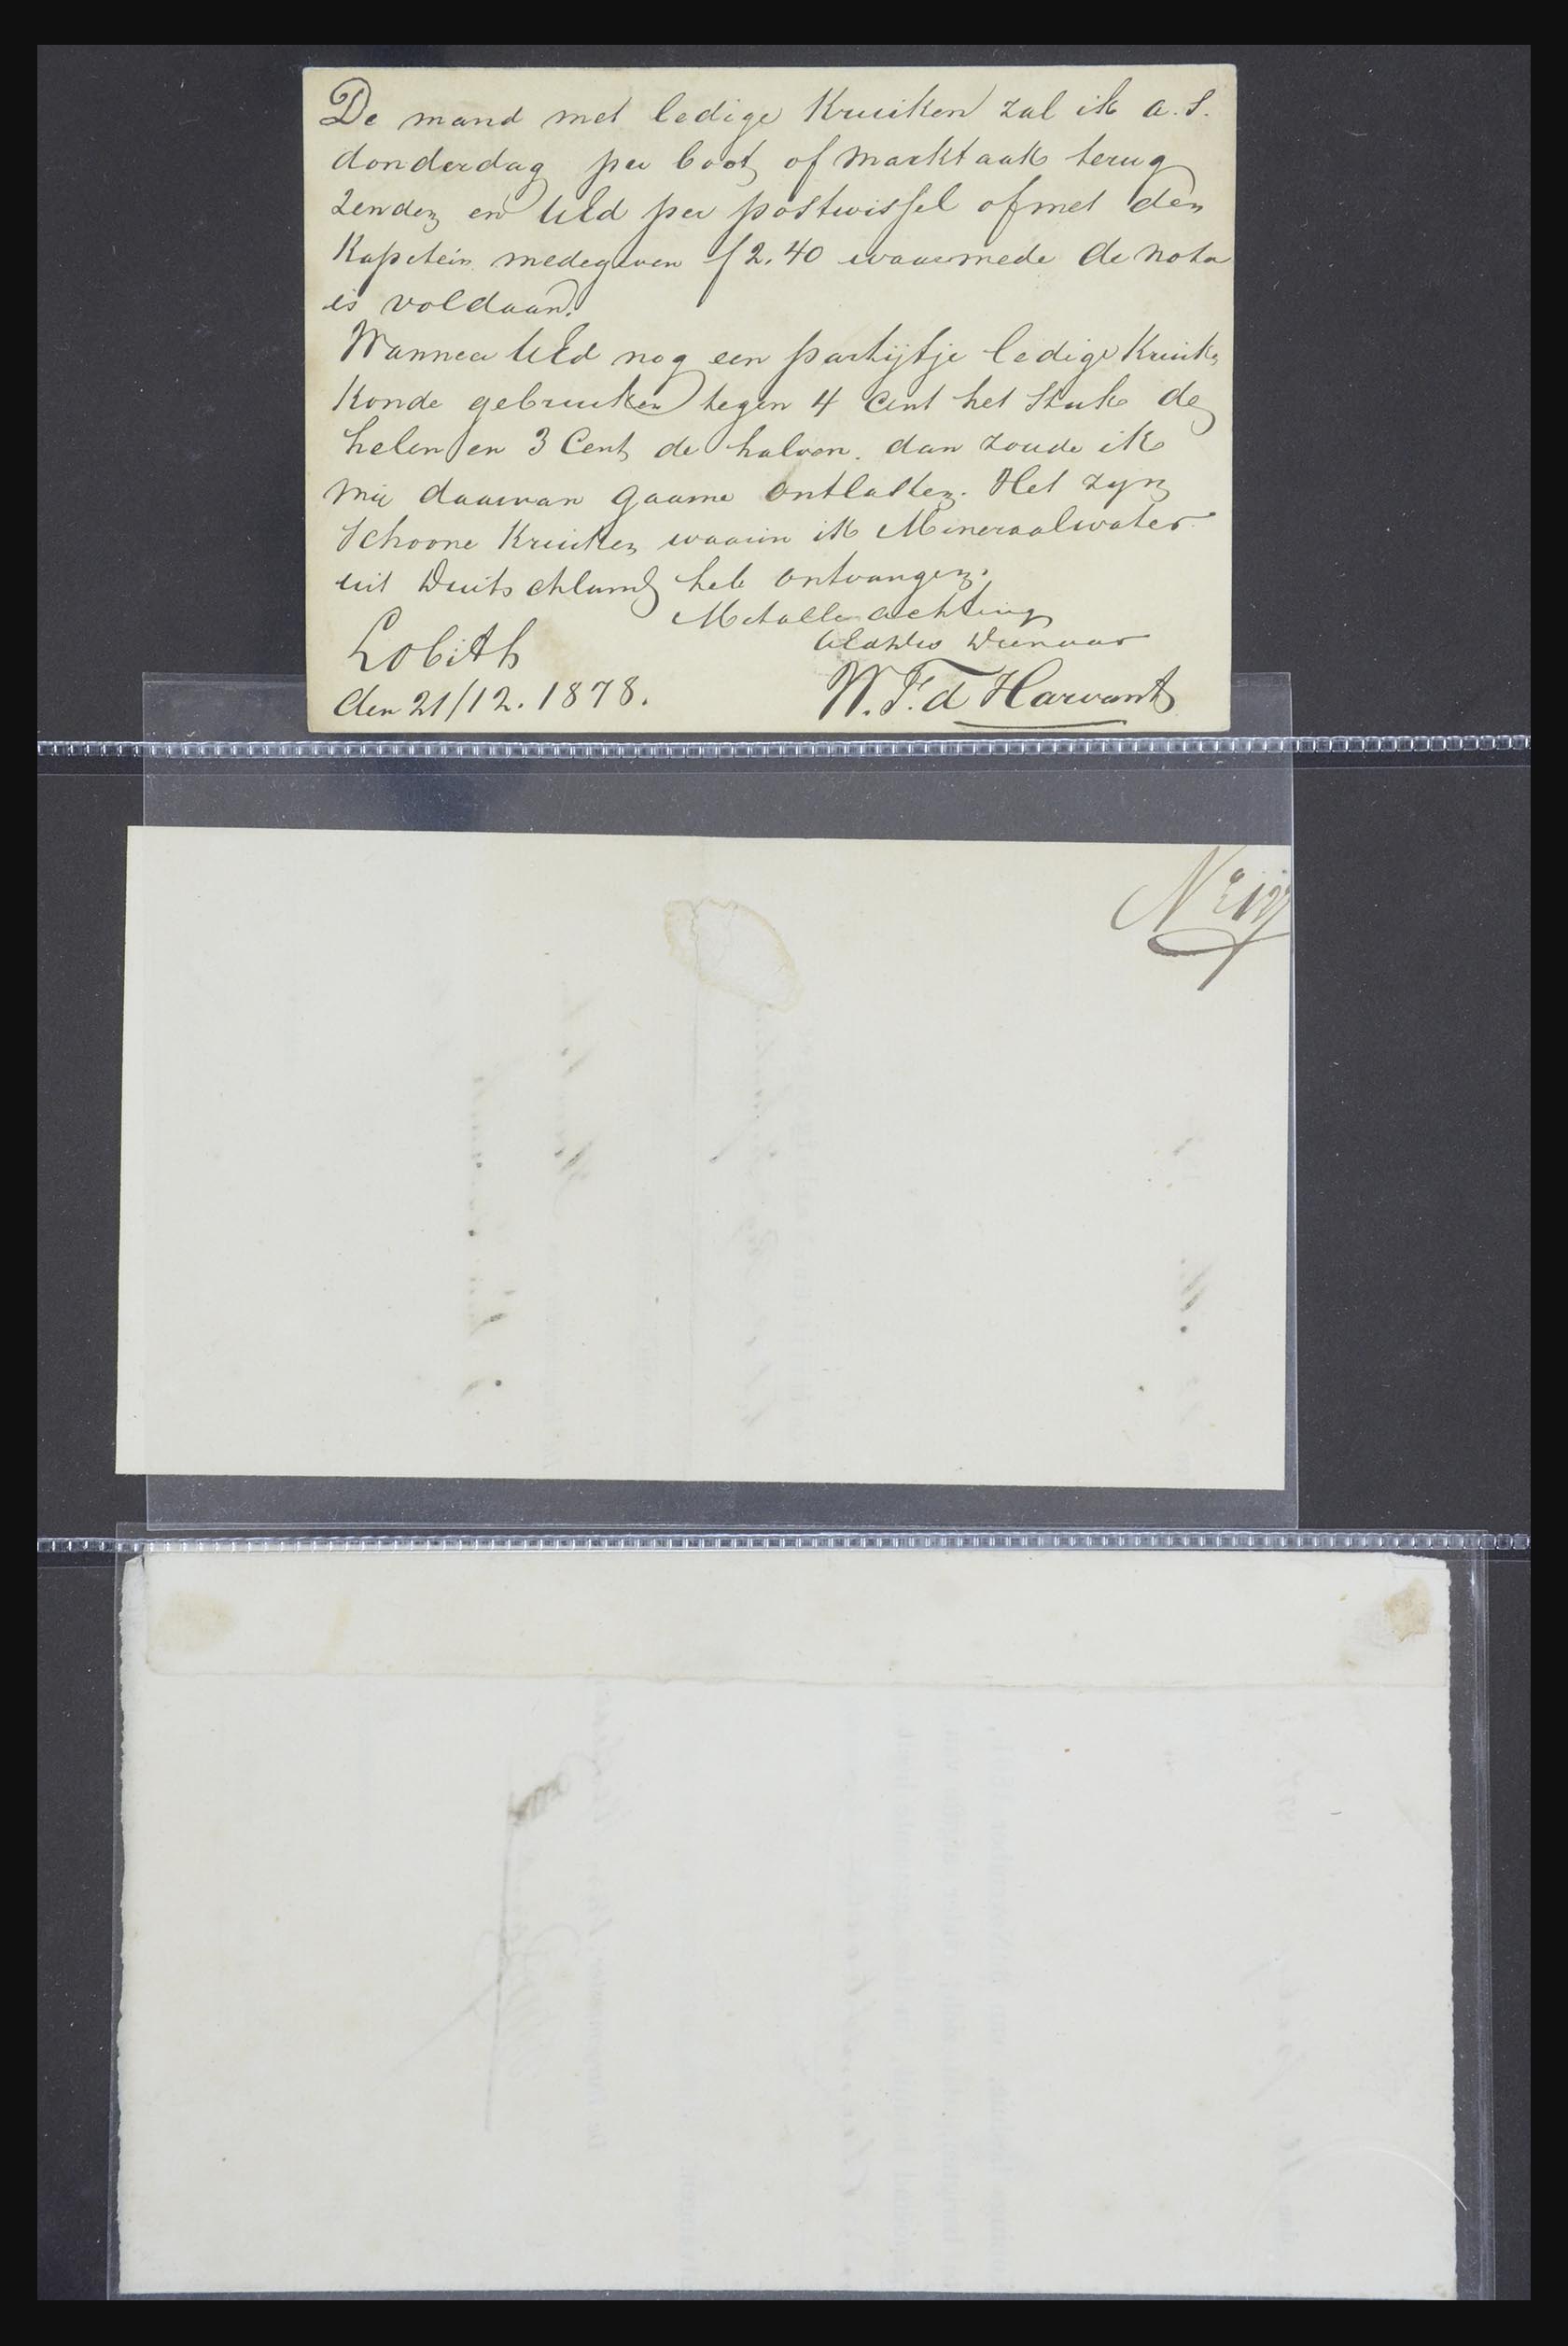 De mand met ledige Kruiken zal ik a.s.
donderdag per boot of marktaak terug
zenden en UEd per postwissel of met den
Kapitein medegeven f 2.40 waarmede de nota
is voldaan.
Wanneer UEd nog een partijtje ledige Kruiken
Konde gebruiken tegen 4 Cent het Stuk de
helen en 3 Cent de halven. dan zoude ik
mij daarvan gaarne ontlasten. Het zijn
Schoone Kruiken waarin ik Mineraalwater
uit Duitschland heb ontvangen.
Met alle achting
Dienaar
Lobith
den 21/12. 1878.
W. F. d
No